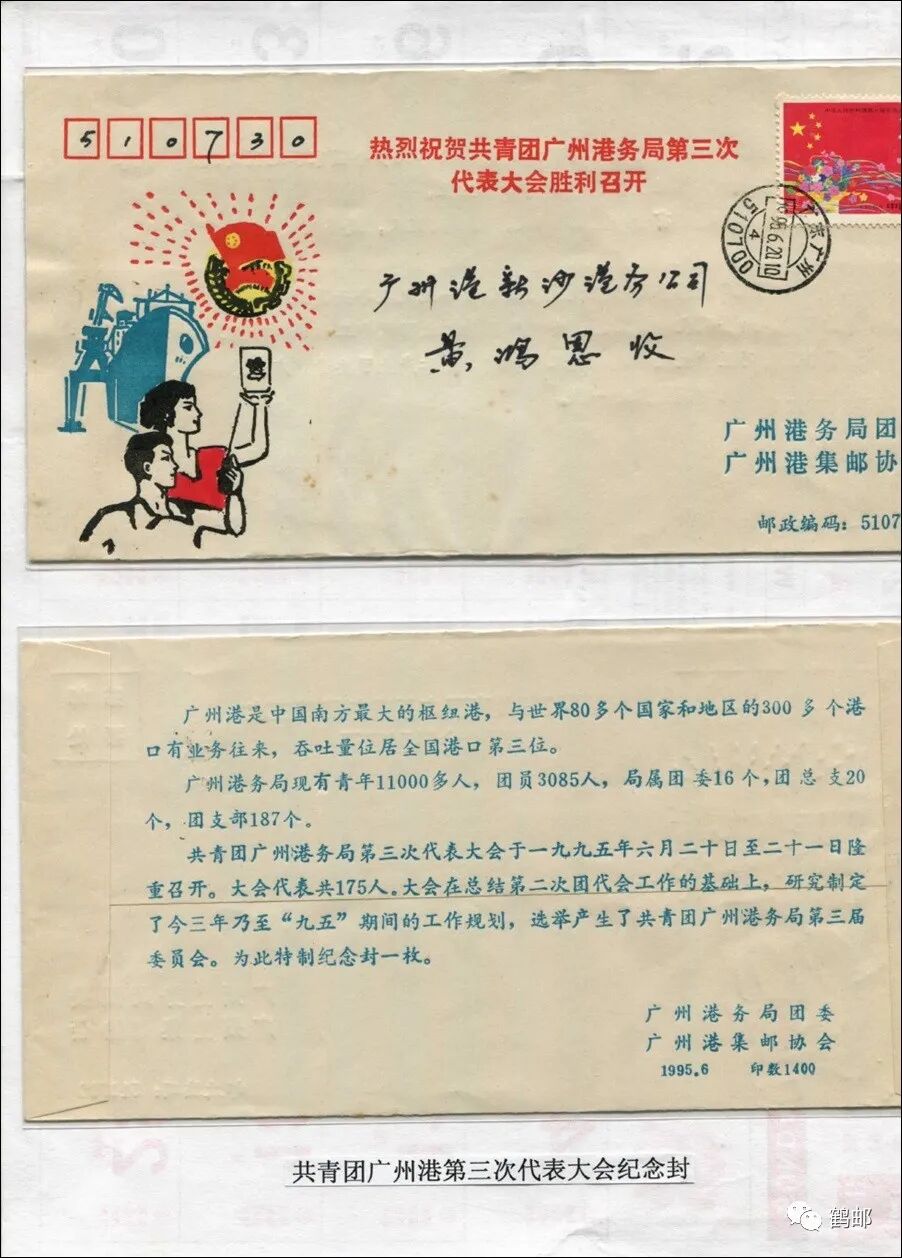 510730
热烈祝贺共青团广州港务局第三次
代表大会胜利召开
广东广州
95.6.20.10
4
510700
广州港新沙港务公司
黄鸿恩 收
广州港务局团
广州港集邮协
邮政编码：5107
广州港是中国南方最大的枢纽港，与世界80多个国家和地区的300多个港
口有业务往来，吞吐量位居全国港口第三位。
广州港务局现有青年11000多人，团员3085人，局属团委16个，团总支20
个，团支部187个。
共青团广州港务局第三次代表大会于一九九五年六月二十日至二十一日隆
重召开。大会代表共175人。大会在总结第二次团代会工作的基础上，研究制定
了今三年乃至“九五”期间的工作规划，选举产生了共青团广州港务局第三届
委员会。为此特制纪念封一枚。
广州港务局团委
广州港集邮协会
1995.6 印数1400
共青团广州港第三次代表大会纪念封
鹤邮